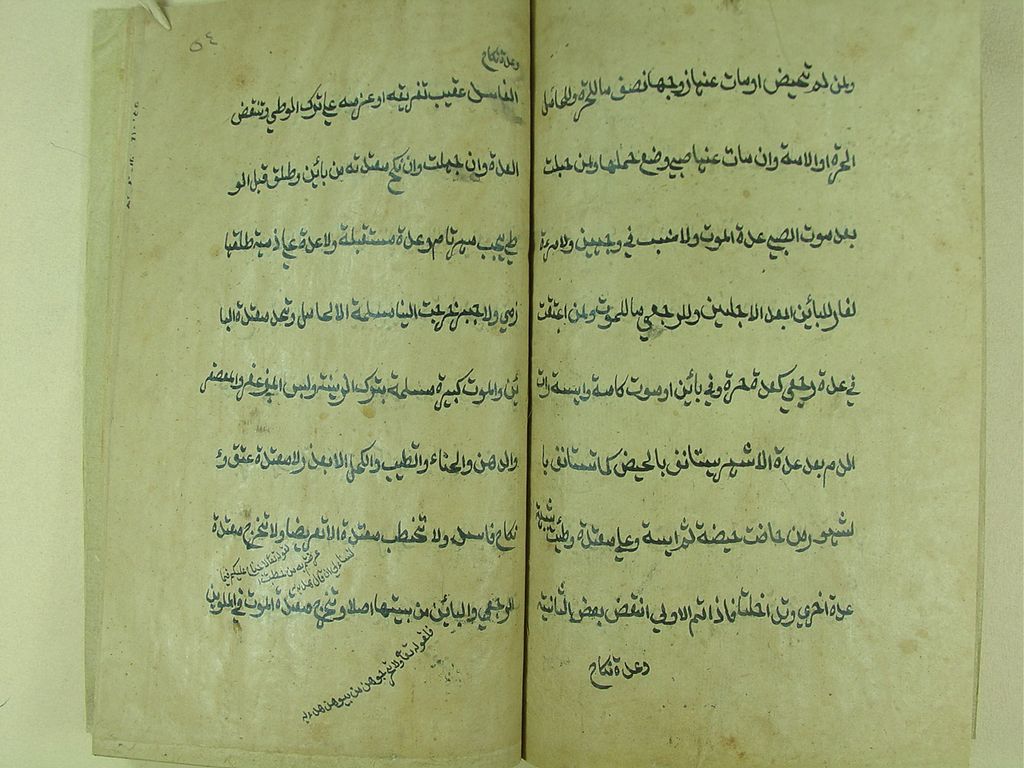 ولمن لم تحيض او مات عنها زوجها نصف ما للحرة وللحامل
الحرة او الامة وان مات عنها صبي وضع حملها ولمن حبلت
بعد موت الصبي عدة الموت ولا نسب في وجهين ولامرءة
لفار للبائن ابعد الاجلين وللرجعي ما للموت ولمن اعتقت
في عدة رجعي كعدة حرة وفي بائن او موت كامة وايسة رات
الدم بعد عدة الاشهر يستانف بالحيض كما تستانف با
لشهور من حاضت حيضة ثم ايسة وعلي معتدة وطئت بشبهة
عدة اخري وتداخلتا فاذا تم الاولي انقض بعض الثانية
وعدة نكاح
٥٤
وعدة نكاح
الفاسد عقيب تفريقه او عزمه علي ترك الوطي وتنقض
العدة وان جهلت وان نكح معتدته من بائن وطلق قبل الو
طي يجب مهر تام وعدة مستقبلة ولا عدة علي ذمية طلقها
ذمي ولا حربية خرجت الينا مسلمة الا الحامل وتحد معتدة البا
ئن والموت كبيرة مسلمة بترك الزينة ولبس المزعفر والمعصفر
والدهن والحناء والطيب والكحل الا بعذر لا معتدة عتق و
نكاح فاسد ولا تخطب معتدة الا تعريضا ولا تخرج معتدة
لقوله تعالي لا جناح عليكم فيما
عرضتم به من خطبة
الرجعي والبائن من بيتها اصلا وتخرج معتدة الموت في الملوين
فلقوله تعالي ولا تخرجوهن من بيوتهن